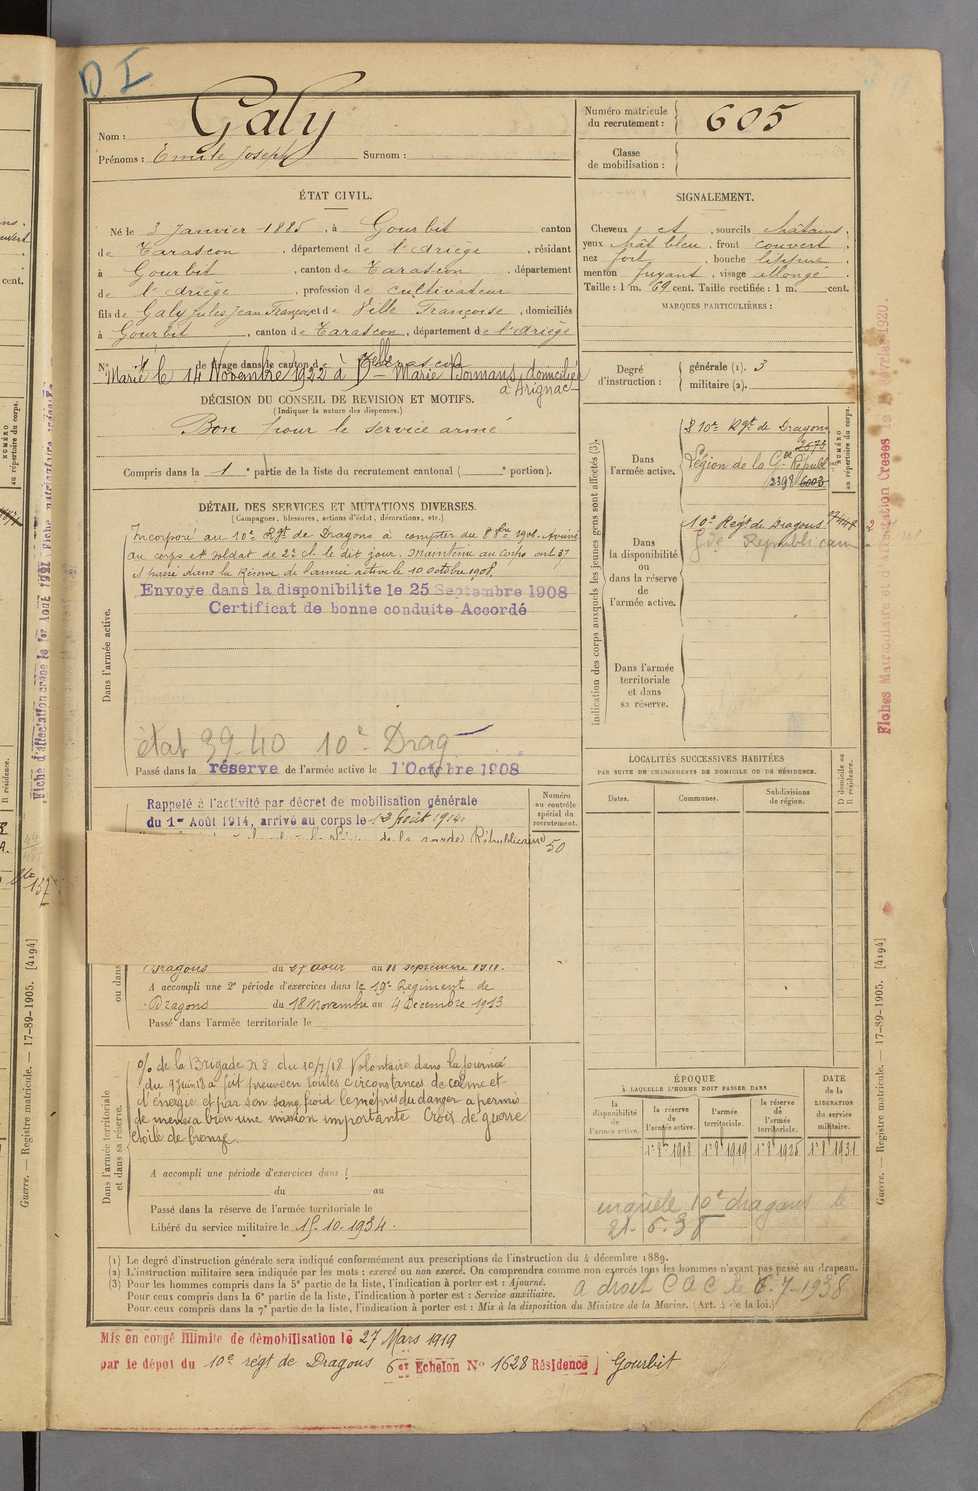 D I
Nom : Galy
Prénoms : Emile Joseph Surnom :
Numéro matricule
du recrutement : 605
Classe
de mobilisation :
ÉTAT CIVIL.
Né le 3 Janvier 1885, à Gourbit canton
de Tarascon, département de l'Ariège, résidant
à Gourbit, canton de Tarascon, département
de l'Ariège, profession de cultivateur
fils de Galy Jules Jean François et de Ville Françoise, domiciliés
à Gourbit, canton de Tarascon, département de l'Ariège
N° de tirage dans le canton de Tarascon
Marié le 14 Novembre 1922 à Marie Bonnans, domiciliée
à Arignac
SIGNALEMENT.
Cheveux et, sourcils châtains,
yeux chât bleu, front couvert
nez fort, bouche lippue
menton fuyant, visage allongé
Taille : 1 m. 69 cent. Taille rectifiée : 1 m. cent.
MARQUES PARTICULIÈRES :
Degré
d'instruction :
générale (1). 3
militaire (2).
DÉCISION DU CONSEIL DE REVISION ET MOTIFS.
(Indiquer la nature des dispenses.)
Bon pour le service armé
Compris dans la 1e partie de la liste du recrutement cantonal ( e portion).
DÉTAIL DES SERVICES ET MUTATIONS DIVERSES.
(Campagnes, blessures, actions d'éclat, décorations, etc.)
Dans l'armée active.
Incorporé au 10e Rgt de Dragons à compter du 8 8bre 1906. Arrivé
au corps et soldat de 2e cl. le dit jour. Maintenu au corps art 37
Passé dans la Réserve de l'armée active le 10 octobre 1908.
Envoye dans la disponibilite le 25 Septembre 1908
Certificat de bonne conduite Accordé
état 39-40 10e Drag
Passé dans la réserve de l'armée active le 1 Octobre 1908
Indication des corps auxquels les jeunes gens sont affectés (3).
NUMÉRO
au répertoire du corps.
Dans
l'armée active.
10e Rgt de Dragons
2673
Légion de la Gde Républ
2398 6003
Dans
la disponibilité
ou
dans la réserve
de
l'armée active.
10e Régt de Dragons
Gde Republicain
Dans l'armée
territoriale
et dans
sa réserve.
Rappelé à l'activité par décret de mobilisation générale
du 1er Août 1914, arrivé au corps le 12 août 1914.
de la garde Républicaine
Numéro
au contrôle
spécial du
recrutement.
50
ou dans
Dragons du 27 août au septembre 1911.
A accompli une 2e période d'exercices dans le 19e Regiment de
Dragons du 18 Novembre au 4 Décembre 1913
Passé dans l'armée territoriale le
LOCALITÉS SUCCESSIVES HABITÉES
PAR SUITE DE CHANGEMENTS DE DOMICILE OU DE RÉSIDENCE.
Dates. Communes. Subdivisions
de région.
D domicile ou
R résidence.
Dans l'armée territoriale
et dans sa réserve.
O/ de la Brigade N 8 du 10/7/18 Volontaire dans la journée
du 9 Juin 18 a fait preuve en toutes circonstances de calme et
d'énergie et par son sang froid le mépris du danger a permis
de mener à bien une mission importante Croix de guerre
étoile de bronze.
A accompli une période d'exercices dans
du au
Passé dans la réserve de l'armée territoriale le
Libéré du service militaire le 15.10.1934.
ÉPOQUE
À LAQUELLE L'HOMME DOIT PASSER DANS
la
disponibilité
de
l'armée active.
la réserve
de
l'armée active.
l'armée
territoriale.
la réserve
de
l'armée
territoriale.
DATE
de la
LIBÉRATION
du service
militaire.
1er 8bre 1908 1er 8bre 1919 1er 8bre 1925 1er 8bre 1931
10e dragons le
21.6.38
(1) Le degré d'instruction générale sera indiqué conformément aux prescriptions de l'instruction du 4 décembre 1889.
(2) L'instruction militaire sera indiquée par les mots : exercé ou non exercé. On comprendra comme non exercés tous les hommes n'ayant pas passé au drapeau.
(3) Pour les hommes compris dans la 5e partie de la liste, l'indication à porter est : Ajourné.
Pour ceux compris dans la 6e partie de la liste, l'indication à porter est : Service auxiliaire.
Pour ceux compris dans la 7e partie de la liste, l'indication à porter est : Mis à la disposition du Ministre de la Marine. (Art. 4 de la loi.)
a droit C A C le 6.7-1938
Mis en congé illimité de démobilisation le 27 Mars 1919
par le dépot du 10e régt de Dragons 6 et Echelon N° 1628 Résidence Gourbit
Guerre. — Registre matricule. — 17-89-1905. [4194]
Fiches Matriculaire et d'Affectation Creees le Février 1920.
Guerre. — Registre matricule. — 17-89-1905. [4194]
Fiche d'affectation créée le 1er Août 1921
NUMÉRO
au répertoire du corps.
cent.
R résidence.
137